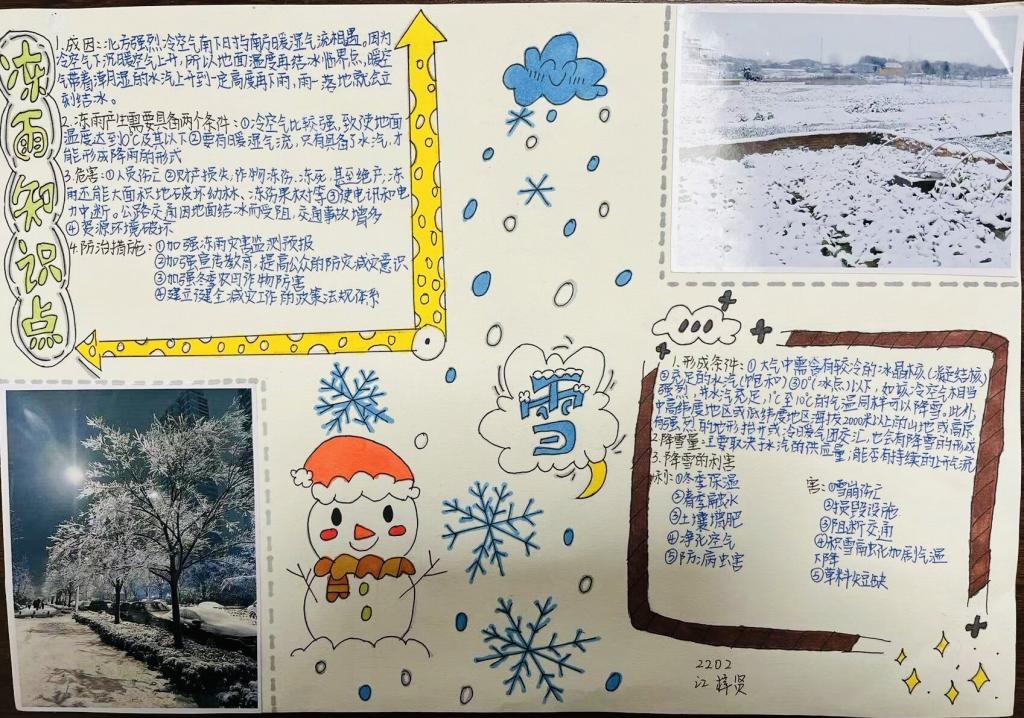 冻雨知识点
1.成因:北方强烈冷空气南下时与南方暖湿气流相遇。因为
冷空气下沉暖空气上升,所以地面温度再结冰临界点,暖空
气带着厚月湿的水汽上升到一定高度再下雨,雨一落地就会立
刻结冰。
2.冻雨产生需要具备两个条件:①冷空气比较强,致使地面
温度达到0℃及其以下②要有暖湿气流,只有具备了水汽,才
能形成降雨的形式
3.危害:①人员伤亡②财产损失,作物冻伤、冻死,甚至绝产,冻
雨还能大面积地破坏幼林、冻伤果树等③使电讯和电
力中断。公路交通因地面结冰而受阻,交通事故增多
④资源环境破坏
4.防治措施:①加强冻雨灾害监测预报
②加强宣传教育,提高公众的防灾减灾意识
③加强冬季农田作物防害
④建立健全减灾工作的政策法规体系
雪
1.形成条件:①大气中需含有较冷的冰晶核(凝结核)
②充足的水汽(饱和)③0℃(冰点)以下,如该冷空气相当
强烈,并水汽充足,1℃至10℃的气温同样可以降雪。此外,
中高纬度地区或低纬度地区海拔2000米以上的山地或高原
有强烈的地形抬升或冷暖气团交汇,也会有降雪的形成
2.降雪量:主要取决于水汽的供应量;能否有持续的上升气流
3.降雪的利害
利:①冬季保温
②春季融水
③土壤增肥
④净化空气
⑤防病虫害
害:①雪崩伤亡
②损毁设施
③阻断交通
④积雪融化加剧气温
下降
⑤草料短缺
2202
江梓贤